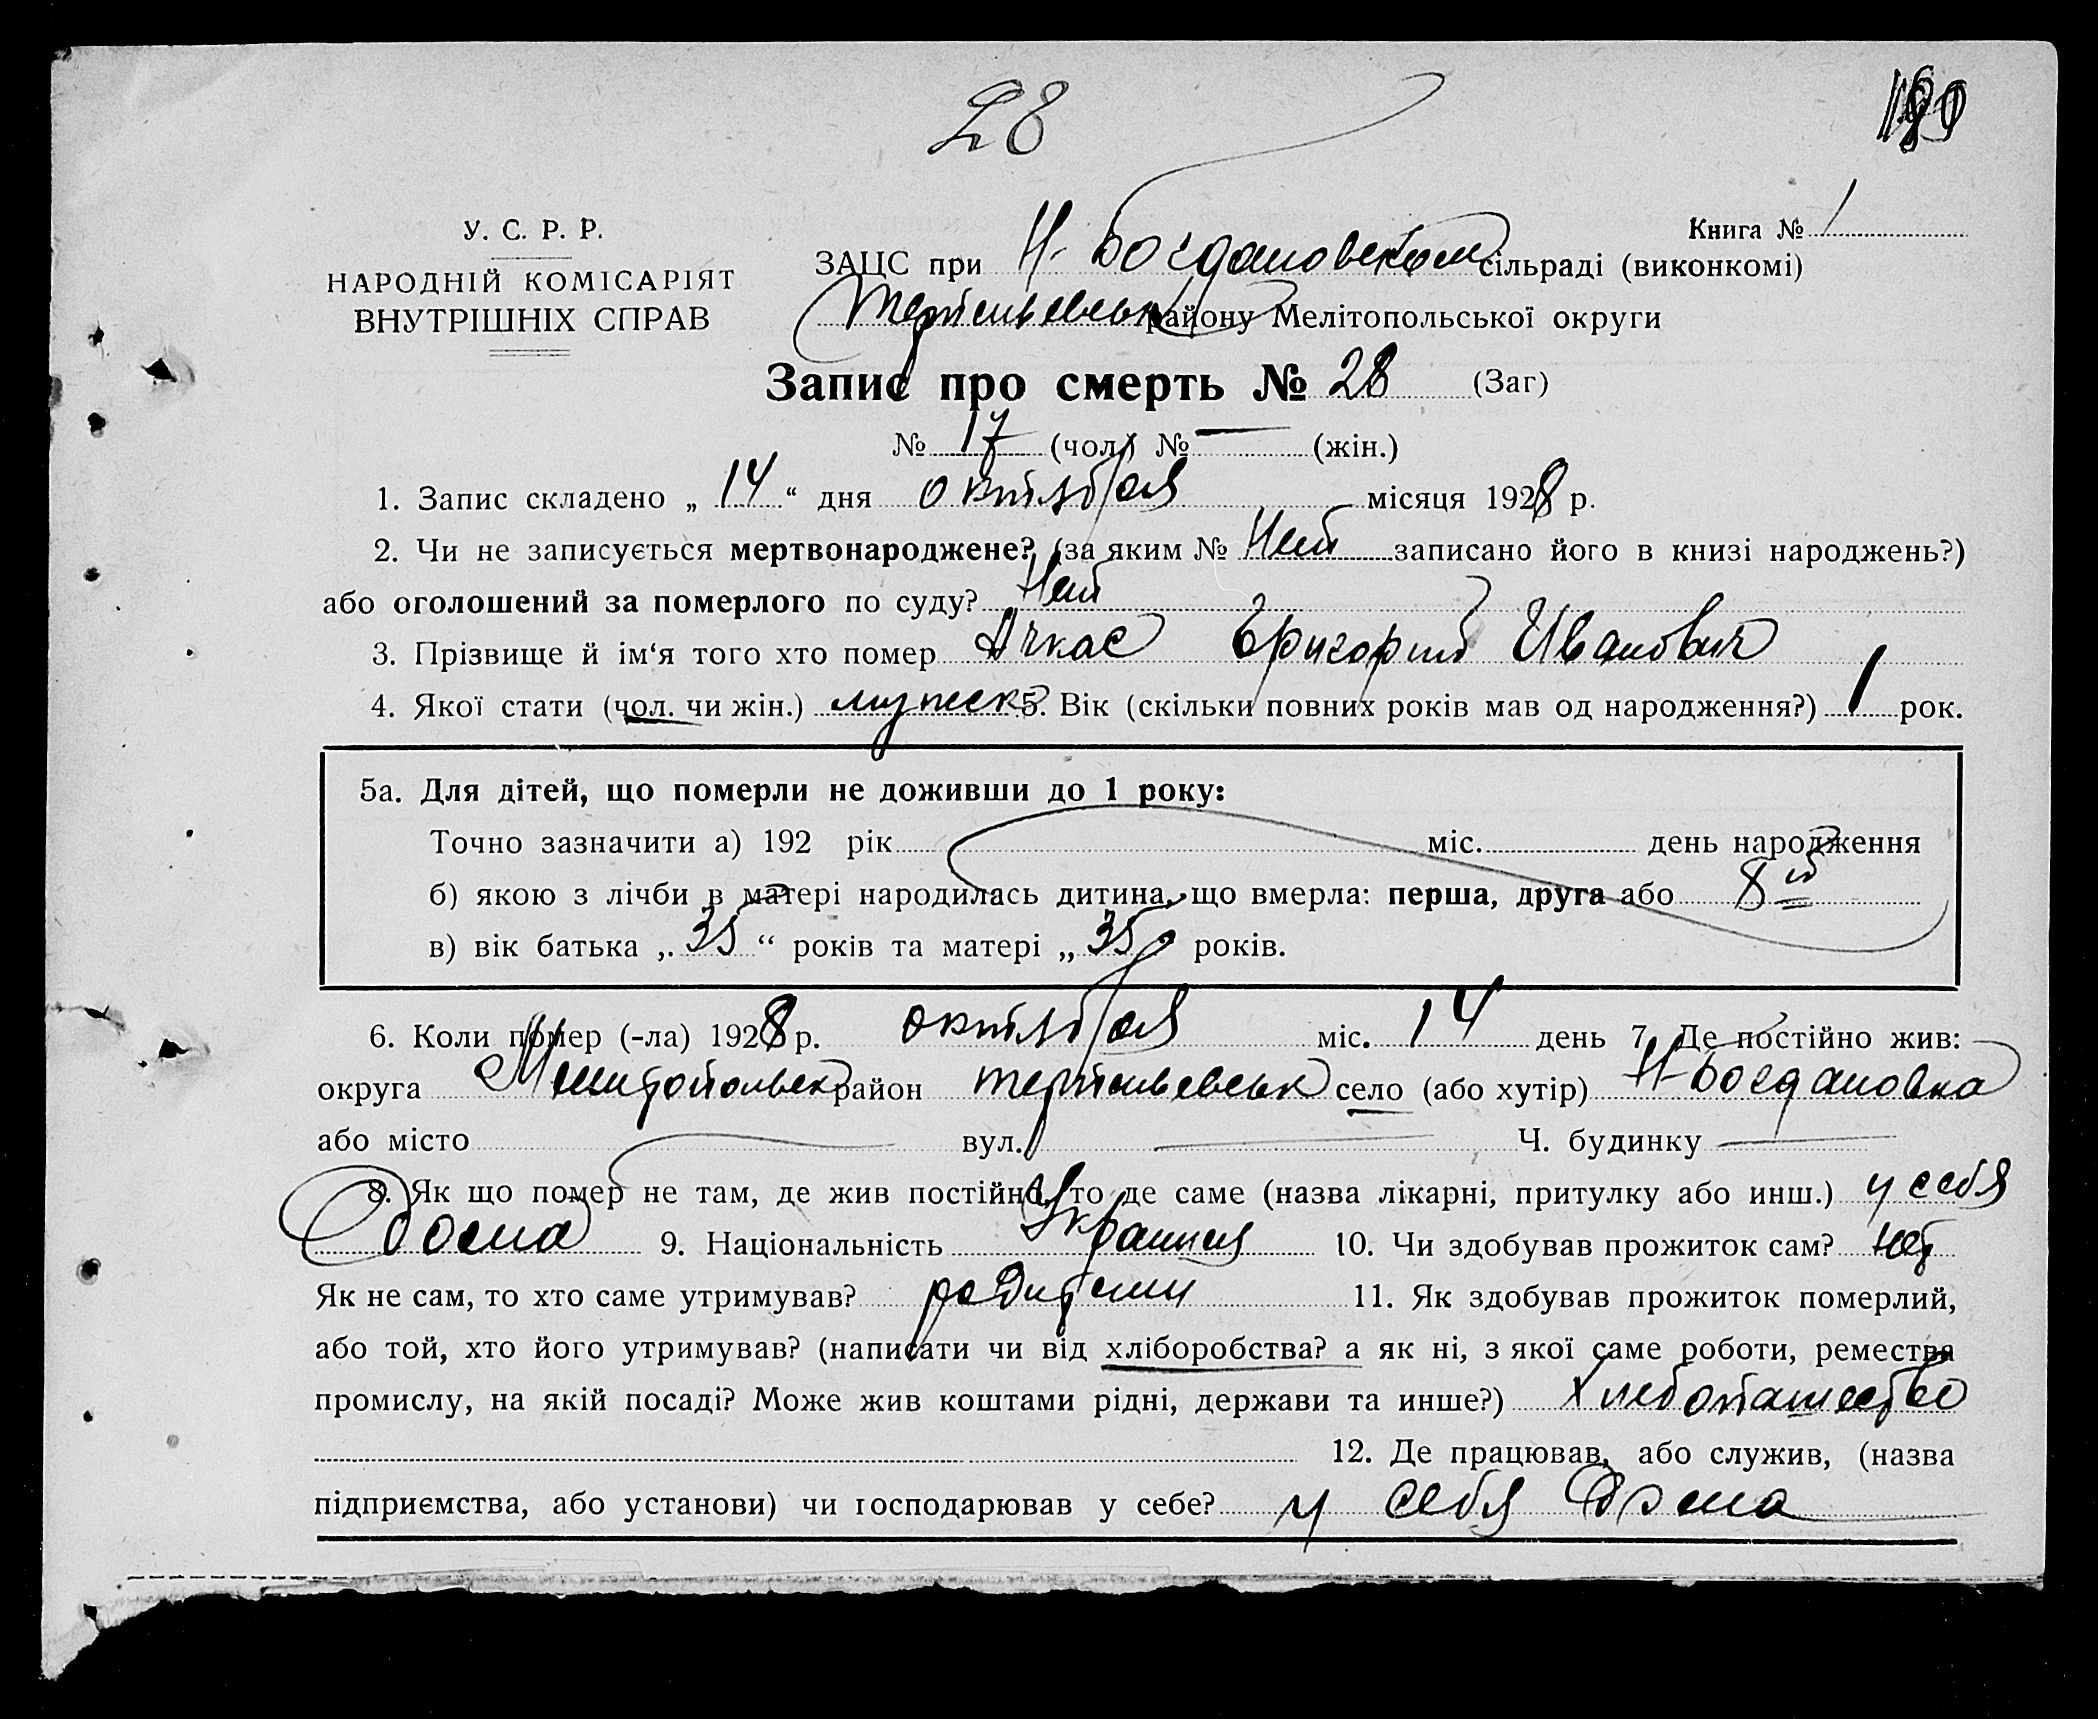 28
У. С. Р. Р.
НАРОДНІЙ КОМІСАРІЯТ
ВНУТРІШНІХ СПРАВ
Книга № 1
ЗАЦС при Н-Богдановском сільраді (виконкомі)
Терпеньевськ району Мелітопольської округи
Запис про смерть № 28 (Заг)
№ 17 (чол.) № — (жін.)
1. Запис складено „ 14 “ дня октября місяця 1928 р.
2. Чи не записується мертвонароджене? (за яким № Нет записано його в книзі народжень?)
або оголошений за померлого по суду? Нет
3. Прізвище й ім‘я того хто помер Ачкас Григорий Иванович
4. Якої стати (чол. чи жін.) мужск. 5. Вік (скільки повних років мав од народження?) 1 рок.
5а. Для дітей, що померли не доживши до 1 року:
Точно зазначити а) 192 рік міс. день народження
б) якою з лічби в матері народилась дитина, що вмерла: перша, друга або 8й
в) вік батька „ 35 “ років та матері „ 35 років.
6. Коли помер (-ла) 1928 р. октября міс. 14 день 7. Де постійно жив:
округа Мелитопольск район терпеньевськ село (або хутір) Н-Богдановка
або місто — вул. — Ч. будинку —
8. Як що помер не там, де жив постійно, то де саме (назва лікарні, притулку або инш.) у себя
Дома 9. Національність Украинец 10. Чи здобував прожиток сам? нет
Як не сам, то хто саме утримував? родители 11. Як здобував прожиток померлий,
або той, хто його утримував? (написати чи від хліборобства? а як ні, з якої саме роботи, ремества
промислу, на якій посаді? Може жив коштами рідні, держави та инше?) Хлебопашество
12. Де працював, або служив, (назва
підприємства, або установи) чи господарював у себе? у себя Дома